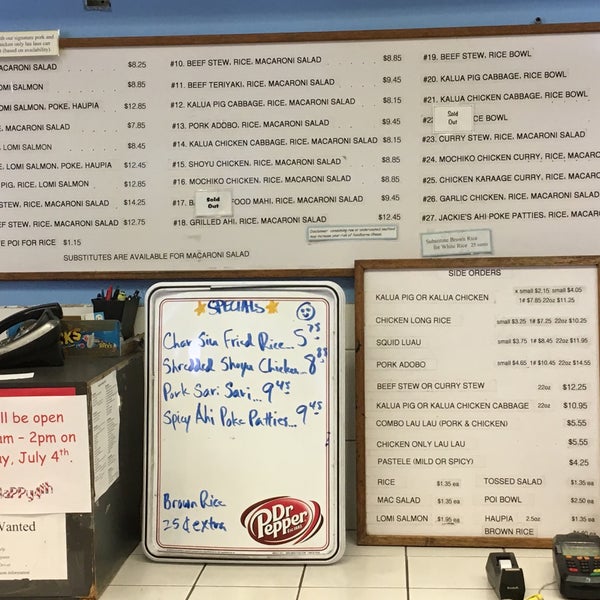 th our signature pork and
hicken only lau laus cart
(based on availability).
ACARONI SALAD $8.25
OMI SALMON $8.85
OMI SALMON. POKE. HAUPIA $12.85
. MACARONI SALAD $7.85
. LOMI SALMON $8.45
. LOMI SALMON. POKE. HAUPIA $12.45
PIG. RICE. LOMI SALMON $12.85
STEW. RICE. MACARONI SALAD $14.25
EF STEW. RICE. MACARONI SALAD $12.75
E POI FOR RICE $1.15
SUBSTITUTES ARE AVAILABLE FOR MACARONI SALAD
#10. BEEF STEW. RICE. MACARONI SALAD $8.85
#11. BEEF TERIYAKI. RICE. MACARONI SALAD $9.45
#12. KALUA PIG CABBAGE. RICE. MACARONI SALAD $8.15
#13. PORK ADOBO. RICE. MACARONI SALAD $9.45
#14. KALUA CHICKEN CABBAGE. RICE. MACARONI SALAD $8.15
#15. SHOYU CHICKEN. RICE. MACARONI SALAD $8.85
#16. MOCHIKO CHICKEN. RICE. MACARONI SALAD $8.85
#17. B Sold Out OOD MAHI. RICE. MACARONI SALAD $9.45
#18. GRILLED AHI. RICE. MACARONI SALAD $12.45
Disclaimer: consuming raw or undercooked seafood
may increase your risk of foodborne illness.
#19. BEEF STEW. RICE BOWL
#20. KALUA PIG CABBAGE. RICE BOWL
#21. KALUA CHICKEN CABBAGE. RICE BOWL
#22 Sold Out CE BOWL
#23. CURRY STEW. RICE. MACARONI SALAD
#24. MOCHIKO CHICKEN CURRY. RICE. MACARO
#25. CHICKEN KARAAGE CURRY. RICE. MACARO
#26. GARLIC CHICKEN. RICE. MACARONI SALAD
#27. JACKIE'S AHI POKE PATTIES. RICE. MACAR
Substitute Brown Rice
for White Rice 25 cents
SPECIALS
Char Siu Fried Rice... 5 75
Shredded Shoyu Chicken.. 8 85
Pork Sari Sari... 9 45
Spicy Ahi Poke Patties... 9 45
Brown Rice
25¢ extra
Dr Pepper
SIDE ORDERS
KALUA PIG OR KALUA CHICKEN x small $2.15 small $4.05
1# $7.85 22oz $11.25
CHICKEN LONG RICE small $3.25 1# $7.25 22oz $10.25
SQUID LUAU small $3.75 1# $8.45 22oz $11.95
PORK ADOBO small $4.65 1# $10.45 22oz $14.55
BEEF STEW OR CURRY STEW 22oz $12.25
KALUA PIG OR KALUA CHICKEN CABBAGE 22oz $10.95
COMBO LAU LAU (PORK & CHICKEN) $5.55
CHICKEN ONLY LAU LAU $5.55
PASTELE (MILD OR SPICY) $4.25
RICE $1.35 ea TOSSED SALAD $1.35 ea
MAC SALAD $1.35 ea POI BOWL $2.50 ea
LOMI SALMON $1.95 ea HAUPIA 2.5oz $1.35 ea
BROWN RICE
ll be open
am - 2pm on
y, July 4th.
Wanted